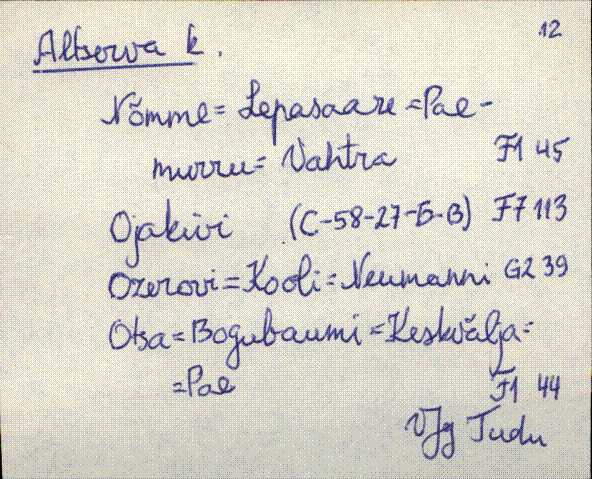 12
Altserva k.
Nõmme = Lepasaare = Pae-
murru = Vahtra F1 45
Ojakivi (C-58-27-Б-В) F7 113
Ozerovi = Kooli = Neumanni G2 39
Otsa = Bogubaumi = Keskvälja =
= Pae F1 44
VJg Tudu